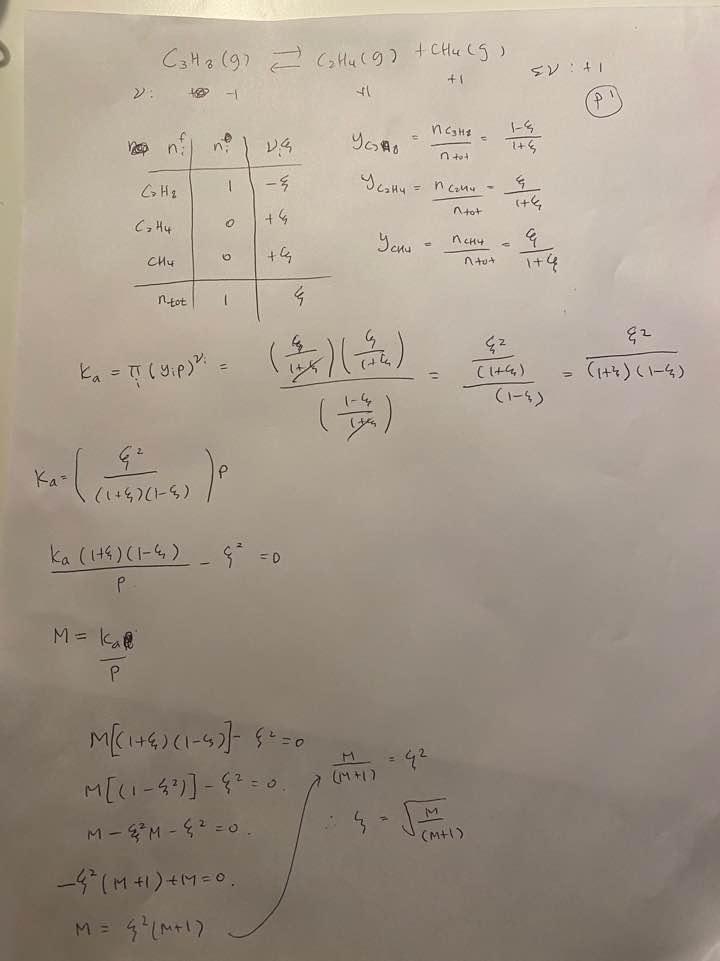 C₃H₈(g) ⇌ C₂H₄(g) + CH₄(g)
ν: -1 +1 +1 Σν: +1
P1
nᵢᶠ nᵢ° νᵢξ
C₂H₈ 1 -ξ
C₂H₄ 0 +ξ
CH₄ 0 +ξ
n_tot 1 ξ
y_C₃H₈ = n_C₃H₈/n_tot = (1-ξ)/(1+ξ)
y_C₂H₄ = n_C₂H₄/n_tot = ξ/(1+ξ)
y_CH₄ = n_CH₄/n_tot = ξ/(1+ξ)
Ka = πᵢ(yᵢP)^νᵢ = (ξ/(1+ξ))(ξ/(1+ξ))/((1-ξ)/(1+ξ)) = (ξ²/(1+ξ))/(1-ξ) = ξ²/((1+ξ)(1-ξ))
Ka = (ξ²/((1+ξ)(1-ξ)))P
Ka(1+ξ)(1-ξ)/P - ξ² = 0
M = Ka/P
M[(1+ξ)(1-ξ)] - ξ² = 0
M[(1-ξ²)] - ξ² = 0.
M - ξ²M - ξ² = 0.
-ξ²(M+1) + M = 0.
M = ξ²(M+1)
M/(M+1) = ξ²
∴ ξ = √(M/(M+1))